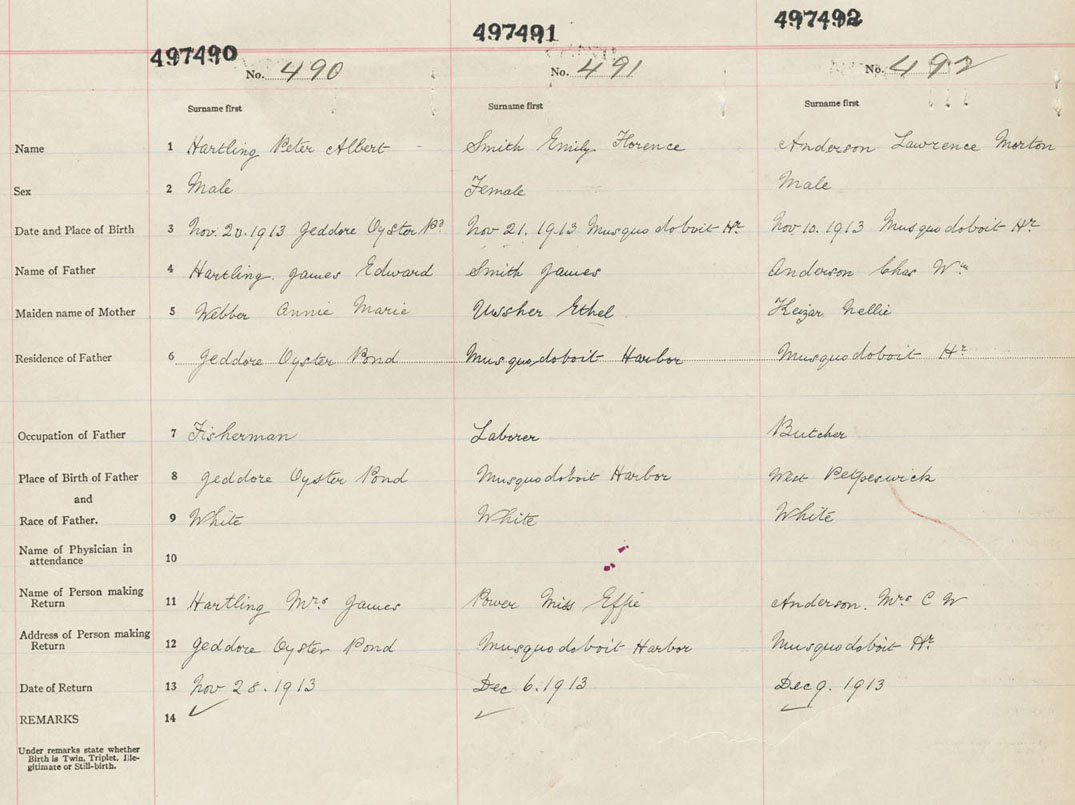 497490 497491 497492
No. 490 No. 491 No. 492
Surname first Surname first Surname first
Name 1 Hartling Peter Albert Smith Emily Florence Anderson Lawrence Morton
Sex 2 Male Female Male
Date and Place of Birth 3 Nov. 20. 1913 Geddore Oyster Pd Nov 21. 1913 Musquodoboit Hr Nov 10. 1913 Musquodoboit Hr
Name of Father 4 Hartling. James Edward Smith James Anderson Chas Wm
Maiden name of Mother 5 Webber Annie Marie Ethel Keizar Nellie
Residence of Father 6 Geddore Oyster Pond Musquodoboit Harbor Musquodoboit Hr
Occupation of Father 7 Fisherman Laborer Butcher
Place of Birth of Father 8 Geddore Oyster Pond Musquodoboit Harbor West Petpeswick
and
Race of Father. 9 White White White
Name of Physician in
attendance 10
Name of Person making
Return 11 Hartling Mrs James Power Miss Effie Anderson. Mrs C W
Address of Person making
Return 12 Geddore Oyster Pond Musquodoboit Harbor Musquodoboit Hr
Date of Return 13 Nov 28. 1913 Dec 6. 1913 Dec 9. 1913
REMARKS 14
Under remarks state whether
Birth is Twin, Triplet, Ille-
gitimate or Still-birth.